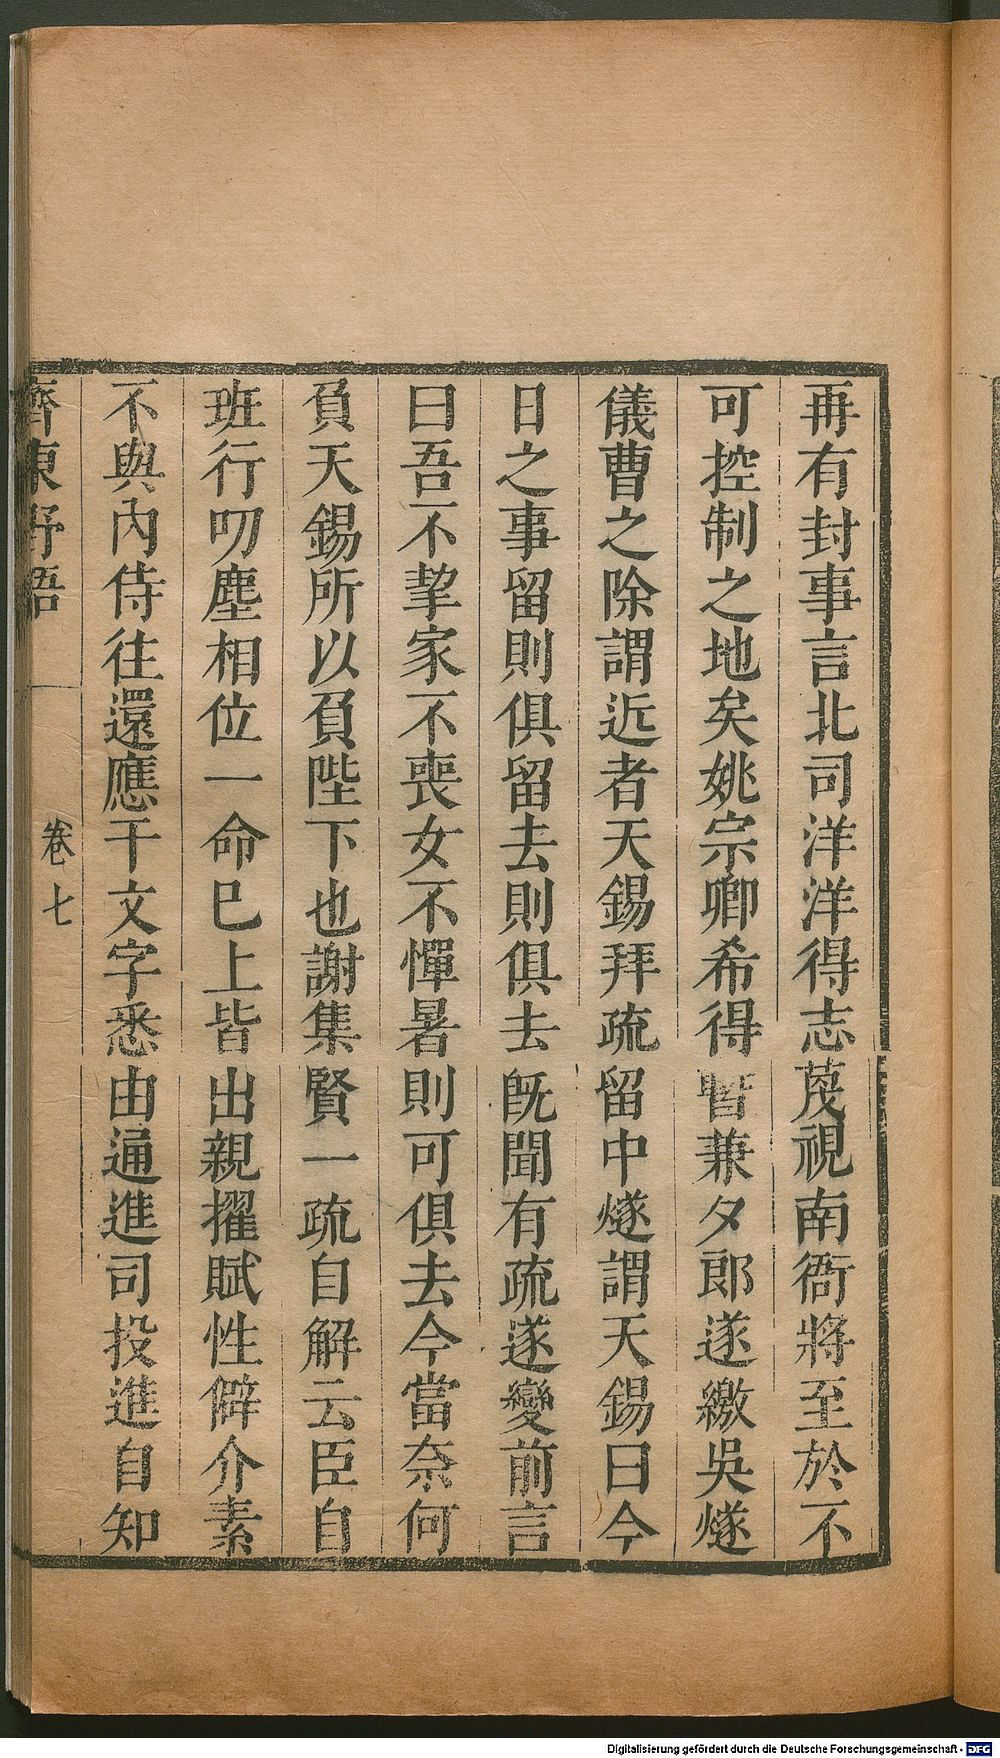 再有封事言北司洋洋得志蔑視南衙將至於不
可控制之地矣姚宗卿希得暫兼夕郎遂繳吳燧
儀曹之除謂近者天錫拜疏留中燧謂天錫曰今
日之事留則俱留去則俱去旣聞有疏遂變前言
曰吾不挈家不喪女不憚暑則可俱去今當奈何
負天錫所以負陛下也謝集賢一疏自解云臣自
班行叨塵相位一命巳上皆出親擢賦性僻介素
不與內侍往還應干文字悉由通進司投進自知
齊東野語 卷七
Digitalisierung gefördert durch die Deutsche Forschungsgemeinschaft - DFG